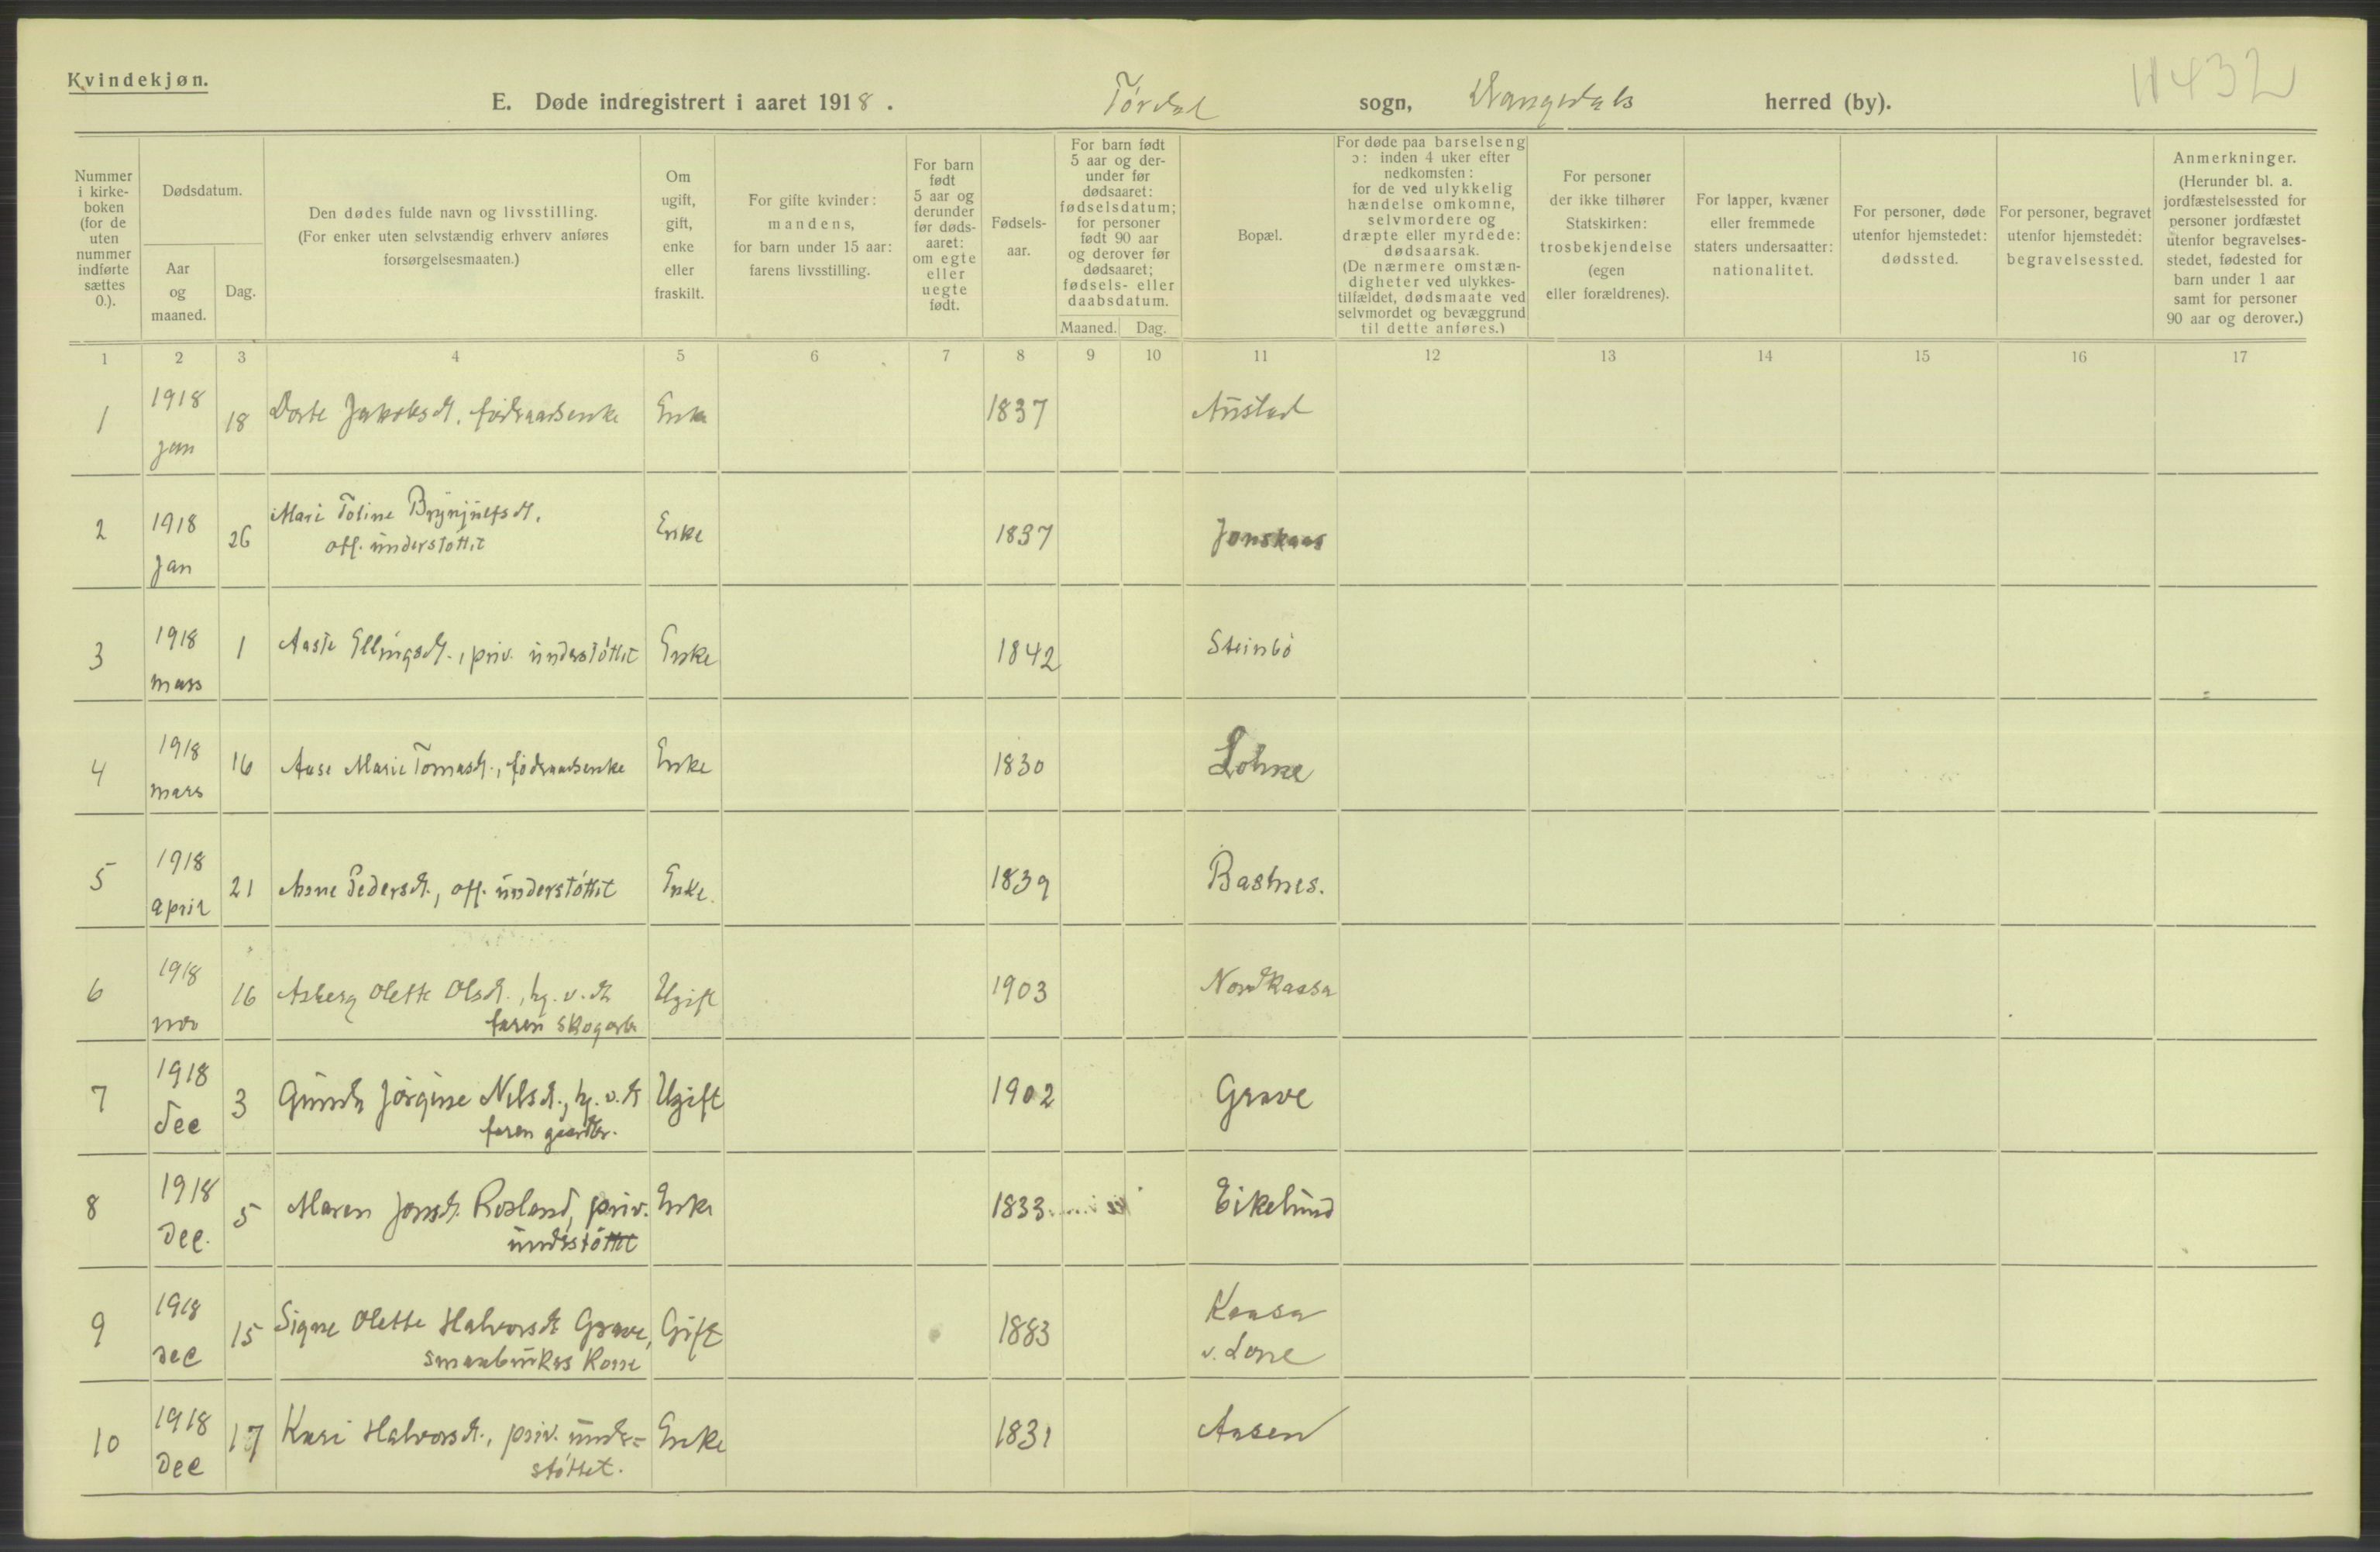 Kvindekjøn.
E. Døde indregistrert i aaret 1918. Tørdal sogn, Drangedals herred (by).
11432
Nummer i kirke-boken (for de uten nummer indførte sættes 0.).
Dødsdatum.
Aar og maaned.
Dag.
Den dødes fulde navn og livsstilling.
(For enker uten selvstændig erhverv anføres forsørgelsesmaaten.)
Om ugift, gift, enke eller fraskilt.
For gifte kvinder: mandens, for barn under 15 aar: farens livsstilling.
For barn født 5 aar og derunder før døds-aaret: om egte eller uegte født.
Fødsels-aar.
For barn født 5 aar og der-under før dødsaaret: fødselsdatum; for personer født 90 aar og derover før dødsaaret; fødsels- eller daabsdatum.
Maaned. Dag.
Bopæl.
For døde paa barselseng ɔ: inden 4 uker efter nedkomsten: for de ved ulykkelig hændelse omkomne, selvmordere og dræpte eller myrdede: dødsaarsak. (De nærmere omstæn-digheter ved ulykkes-tilfældet, dødsmaate ved selvmordet og bevæggrund til dette anføres.)
For personer der ikke tilhører Statskirken: trosbekjendelse (egen eller forældrenes).
For lapper, kvæner eller fremmede staters undersaatter: nationalitet.
For personer, døde utenfor hjemstedet: dødssted.
For personer, begravet utenfor hjemstedet: begravelsessted.
Anmerkninger. (Herunder bl. a. jordfæstelsessted for personer jordfæstet utenfor begravelses-stedet, fødested for barn under 1 aar samt for personer 90 aar og derover.)
1 2 3 4 5 6 7 8 9 10 11 12 13 14 15 16 17
1 1918 Jan 18 Dorte Jakobsdt. føderaadsenke Enke 1837 Austad
2 1918 Jan 26 Mari Toline Brynjulfsdt.
off. understøttet Enke 1837 Jonskaas
3 1918 mars 1 Aaste Ellingsdt., priv. understøttet Enke 1842 Steinbö
4 1918 mars 16 Aase Marie Tomasdt., føderaadsenke Enke 1830 Lohne
5 1918 april 21 Anne Pedersdt., off. understøttet Enke. 1839 Bastnes.
6 1918 nov 16 Asberg Olette Olsdt., hj. v. dt
faren skogarb. Ugift 1903 Nordkaasa
7 1918 Dec 3 Gunda Jörgine Nilsdt., hj. v. dt
faren gaardbr. Ugift 1902 Grave
8 1918 Dec. 5 Maren Jonsdt. Rosland, priv.
understøttet Enke 1833 Eikelund
9 1918 Dec 15 Signe Olette Halvorsdt Grave,
smaabrukers kone Gift 1883 Kaasa
v. Lone
10 1918 Dec 17 Kari Halvorsdt., priv. under=
støttet. Enke 1831 Aasen